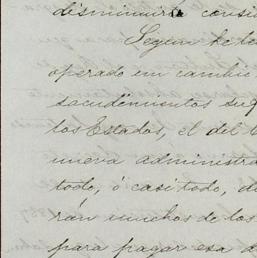 disminuiría consi
Segun he te
operado en cambio
sacudimientos su
los Estados, el del
nueva administra
todo, ó casi todo, d
rán muchos de los
para pagar esa d